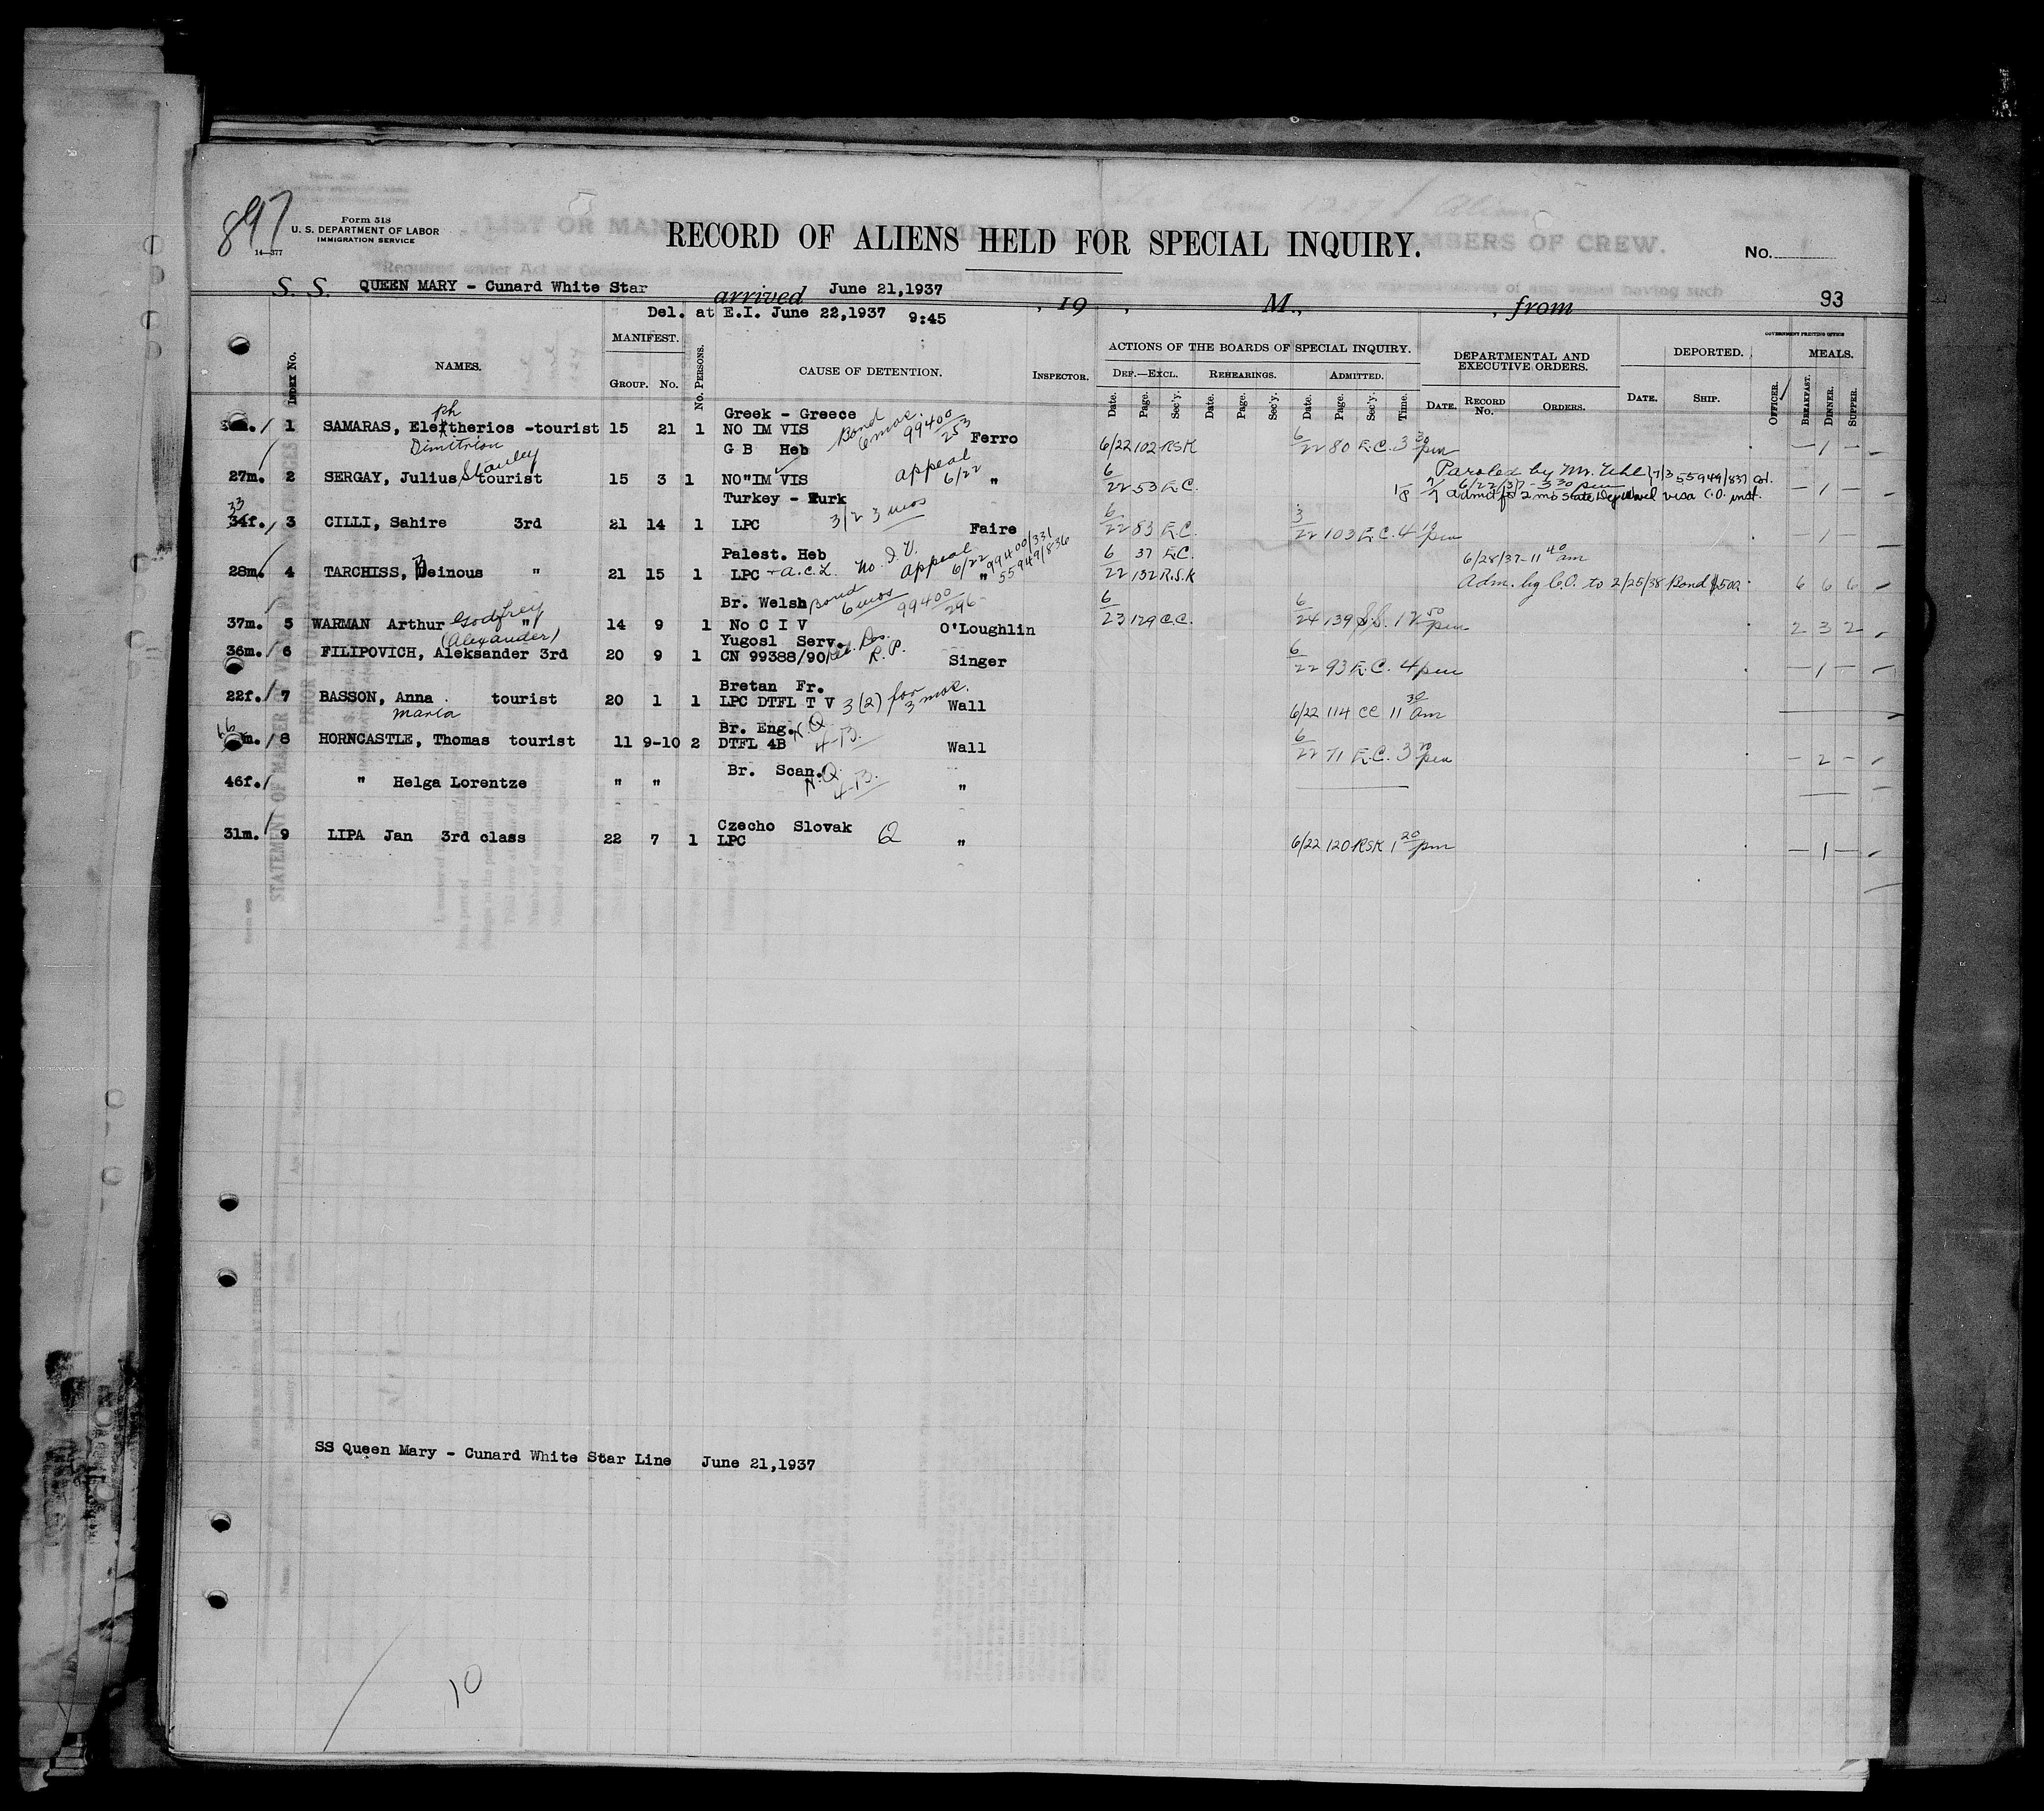 897
Form 513
U. S. DEPARTMENT OF LABOR
IMMIGRATION SERVICE
14—377
RECORD OF ALIENS HELD FOR SPECIAL INQUIRY.
No.
S. S. QUEEN MARY - Cunard White Star arrived June 21,1937 , 19 , M., , from 93
Del. at E.I. June 22,1937 9:45
GOVERNMENT PRINTING OFFICE
INDEX No. NAMES. MANIFEST. GROUP. No. No. PERSONS. CAUSE OF DETENTION. INSPECTOR. ACTIONS OF THE BOARDS OF SPECIAL INQUIRY. DEPARTMENTAL AND EXECUTIVE ORDERS. DEPORTED. MEALS.
DEF.—EXCL. REHEARINGS. ADMITTED.
Date. Page. Sec'y. Date. Page. Sec'y. Date. Page. Sec'y. Time. DATE. RECORD No. ORDERS. DATE. SHIP. OFFICER. BREAKFAST. DINNER. SUPPER.
ph Greek - Greece Bond 6 mos. 99400/253
m. / 1 SAMARAS, Elektherios -tourist 15 21 1 NO IM VIS Ferro 6/22 102 RSK 6/22 80 E.C. 3 30 pm — 1 —
Dimitrion G B Heb
Stanley appeal 6/22 Paroled by Mr. Uhl 55949/837
27m. 2 SERGAY, Julius tourist 15 3 1 NO"IM VIS " 6/22 53 E.C. 6/22/37 - 3 30 pm — 1 —
Admit for 2 mo State Dept
Turkey - Turk 3/2 3 mos
33
34f. / 3 CILLI, Sahire 3rd 21 14 1 LPC Faire 6/22 83 E.C. 22 103 E.C. 4 10 pm — 1 —
Palest. Heb No I.V. Appeal 6/22 99400/331 55949/836 6 37 E.C. 6/28/37-11 40 am
28m. 4 TARCHISS, Deinous " 21 15 1 LPC - A.C.L. " 22 132 R.S.K Adm. by C.O. to 2/25/38 Bond $500. 6 6 6
Br. Welsh Bond 6 mos 99400/296
37m. 5 WARMAN Arthur Godfrey " 14 9 1 No C I V O'Loughlin 6/23 129 C.C. 6/24 139 S.S. 12 50 pm 2 3 2
(Alexander) Yugosl Serv.
36m. / 6 FILIPOVICH, Aleksander 3rd 20 9 1 CN 99388/90 R.P. Singer 6/22 93 E.C. 4 pm — 1 —
Bretan Fr.
22f. / 7 BASSON, Anna tourist 20 1 1 LPC DTFL T V 3(2) for 3 mos. Wall 6/22 114 CC 11 30 am
Maria Br. Eng. N.Q. 4-B.
m. / 8 HORNCASTLE, Thomas tourist 11 9-10 2 DTFL 4B Wall 6/22 71 E.C. 3 20 pm — 2 —
Br. Scan. N.Q. 4-B.
46f. / " Helga Lorentze " " "
Czecho Slovak
31m. / 9 LIPA Jan 3rd class 22 7 1 LPC Q " 6/22 120 RSK 1 20 pm — 1 —
SS Queen Mary - Cunard White Star Line June 21,1937
10